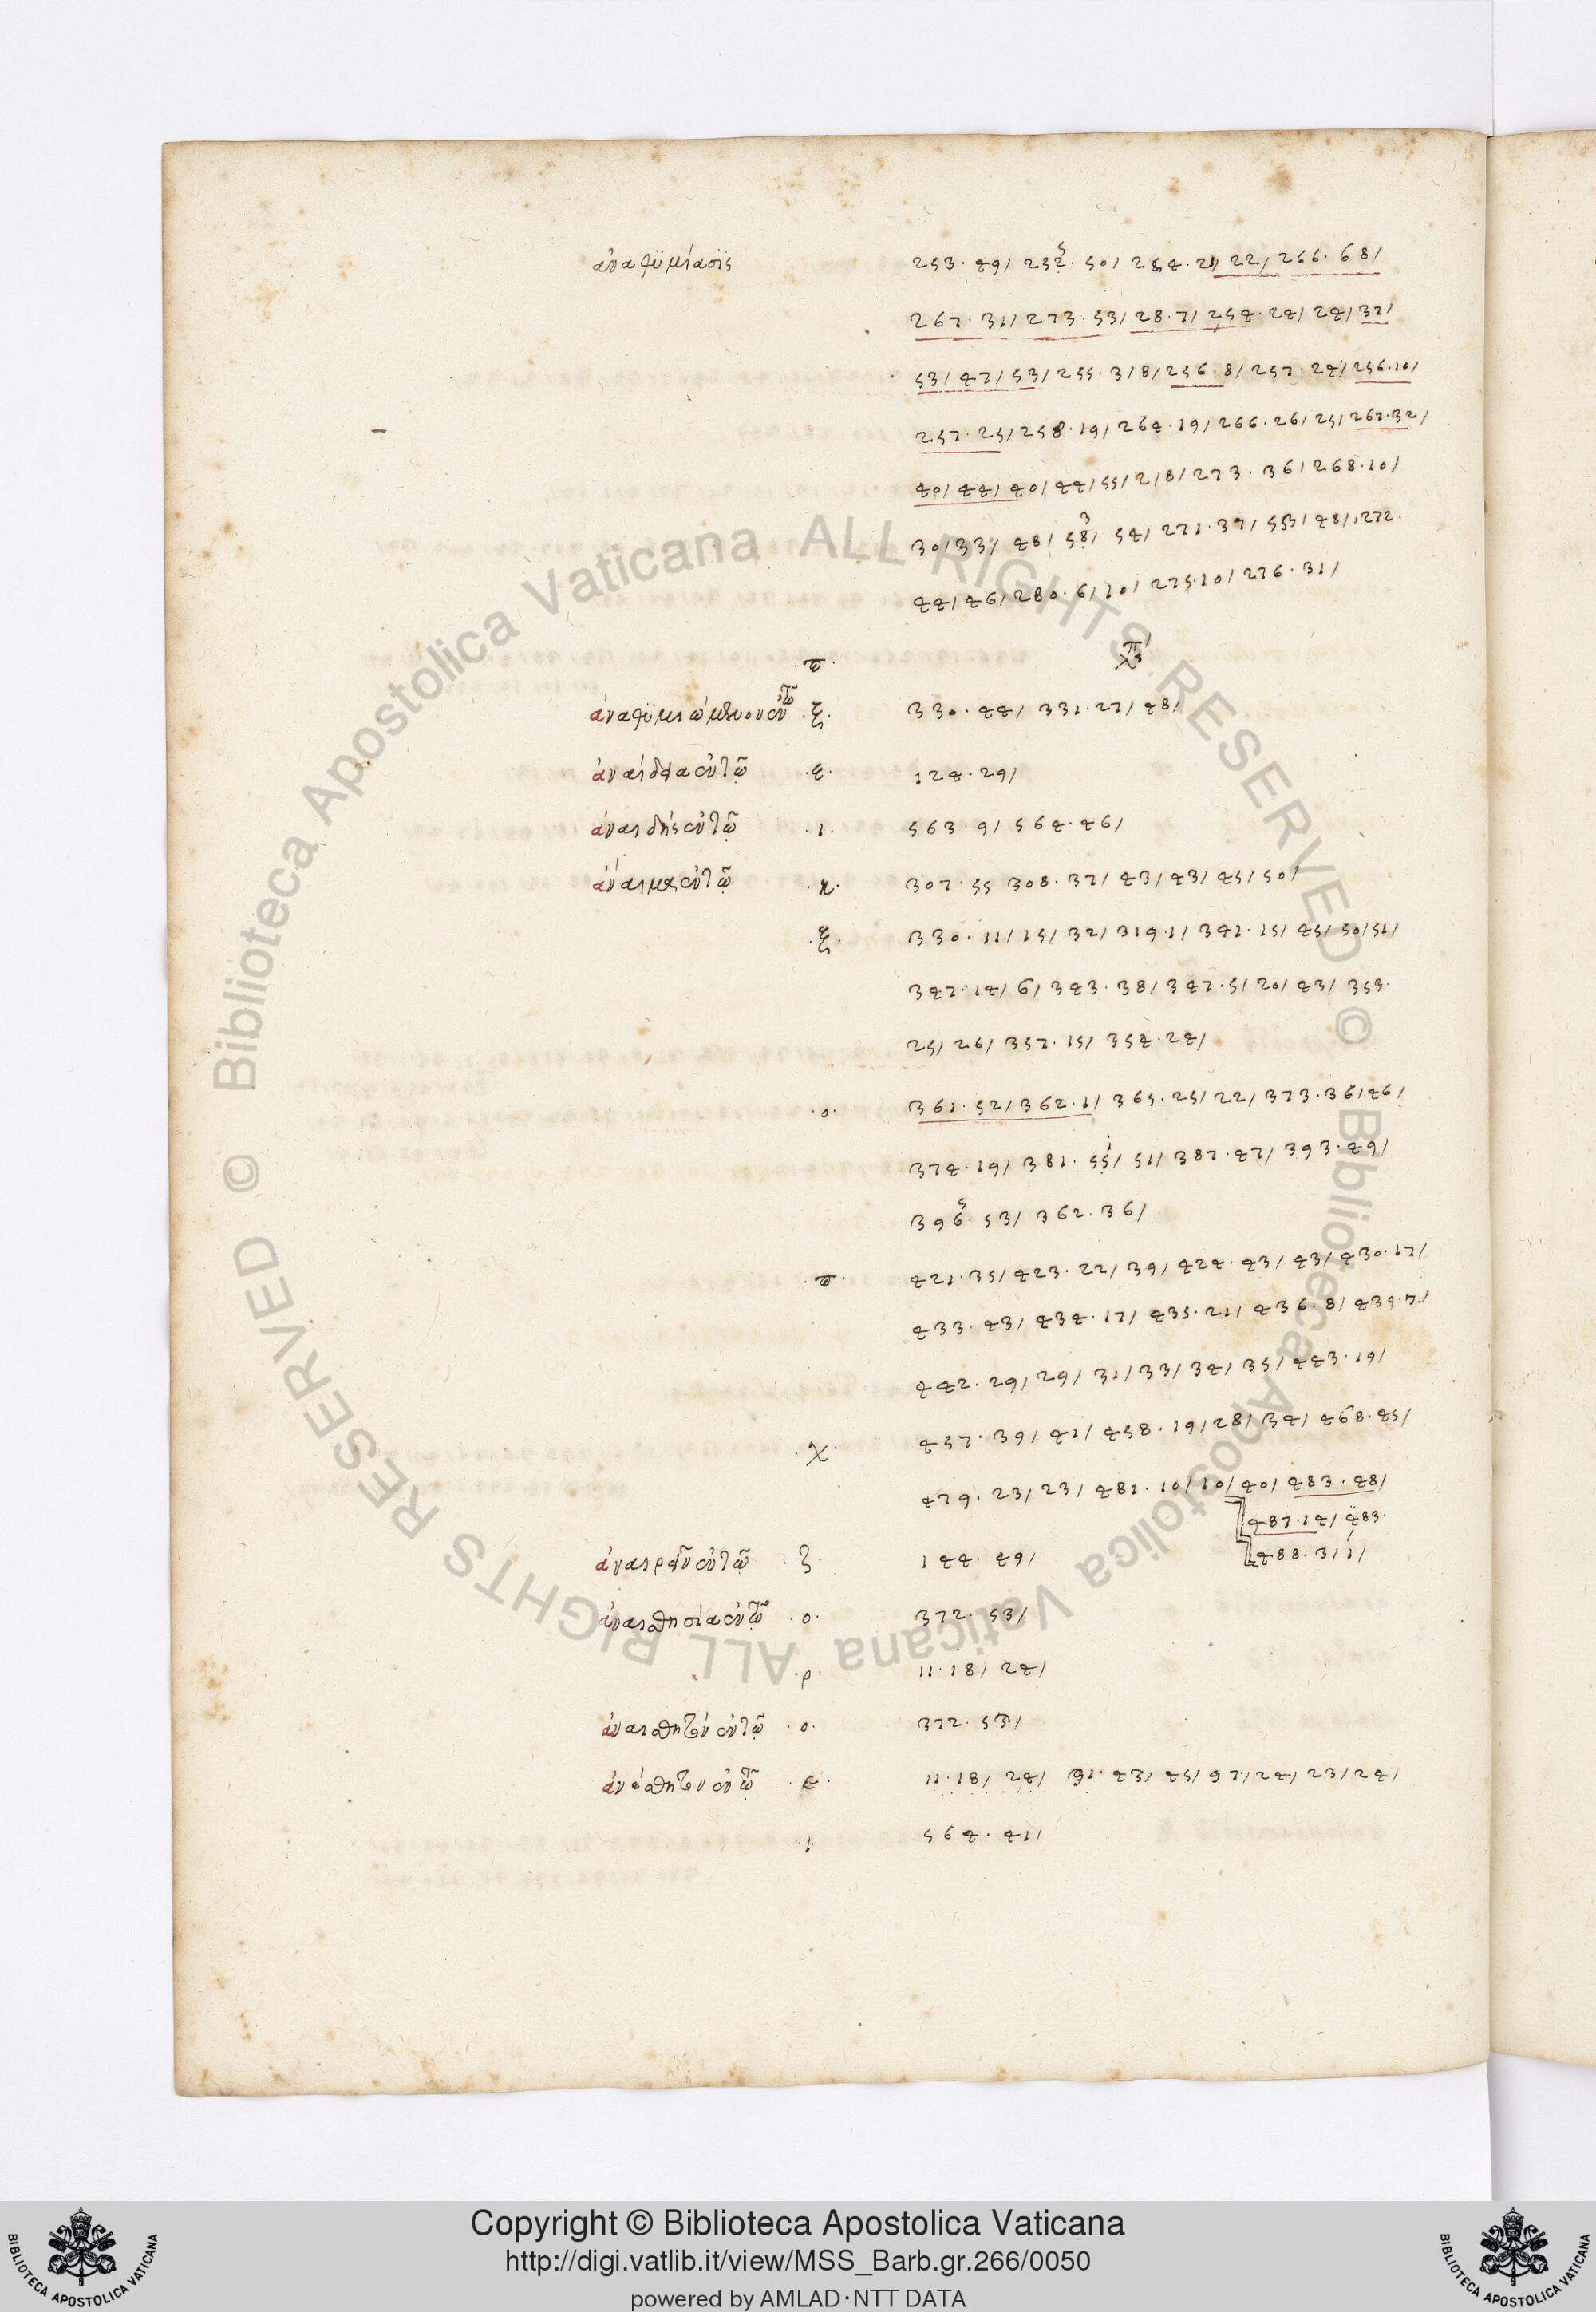 ἀναθϋμίασϊς 253·49/ 252·50/ 254·21/ 22/ 266·68/
267·31/ 273·53/ 28·7/ 254·24/ 24/ 37/
53/ 47/ 53/ 255·3/8/ 256·8/ 257·24/ 256·10/
257·25/ 258·19/ 264·19/ 266·26/ 25/ 267·32/
40/ 44/ 40/ 44/ 55/ 2/8/ 273·36/ 268·10/
30/ 33/ 48/ 58/ 54/ 271·37/ 553/ 48/ 272·
44/ 46/ 280·6/ 10/ 275·10/ 276·31/
·π·
·ξ· 330·44/ 331·27/ 48/
ἀναίδεια αὐτῶ ·ε· 124·29/
ἀναιδής αὐτῶ ·ι· 563·9/ 564·46/
ἄναιμα αὐτῶ ·κ· 307·55 308·37/ 43/ 43/ 45/ 50/
·ξ· 330·11/ 15/ 32/ 319·1/ 341·15/ 45/ 50/ 51/
347·14/ 6/ 343·38/ 347·5/ 20/ 43/ 353·
25/ 26/ 357·15/ 354·24/
·ο· 361·52/ 362·1/ 365·25/ 22/ 373·36/ 46/
374·19/ 381·55/ 51/ 387·47/ 393·49/
396·53/ 362·36/
·π· 421·35/ 423·22/ 39/ 424·43/ 43/ 430·17/
433·43/ 434·17/ 435·21/ 436·8/ 439·7/
442·29/ 29/ 31/ 33/ 34/ 35/ 443·19/
·χ· 457·39/ 41/ 458·19/ 28/ 34/ 468·45/
479·23/ 23/ 481·10/ 10/ 40/ 483·48/
487·14/ 483·
488·3/ 1/
ἀναιρεῖν αὐτῶ ·ζ· 144·49/
ἀναισθησία αὐτῶ ·ο· 372·53/
·ρ· 11·18/ 24/
ἀναισθητεῖν αὐτῶ ·ο· 372·53/
ἀναίσθητον αὐτῶ ·ε· 11·18/ 24/ 91·43/ 45/ 97/ 24/ 23/ 24/
·ι· 564·41/
© Biblioteca Apostolica Vaticana ALL RIGHTS RESERVED © Biblioteca Apostolica Vaticana ALL RIGHTS RESERVED
BIBLIOTECA APOSTOLICA VATICANA
Copyright © Biblioteca Apostolica Vaticana
http://digi.vatlib.it/view/MSS_Barb.gr.266/0050
powered by AMLAD·NTT DATA
BIBLIOTECA APOSTOLICA VATICANA